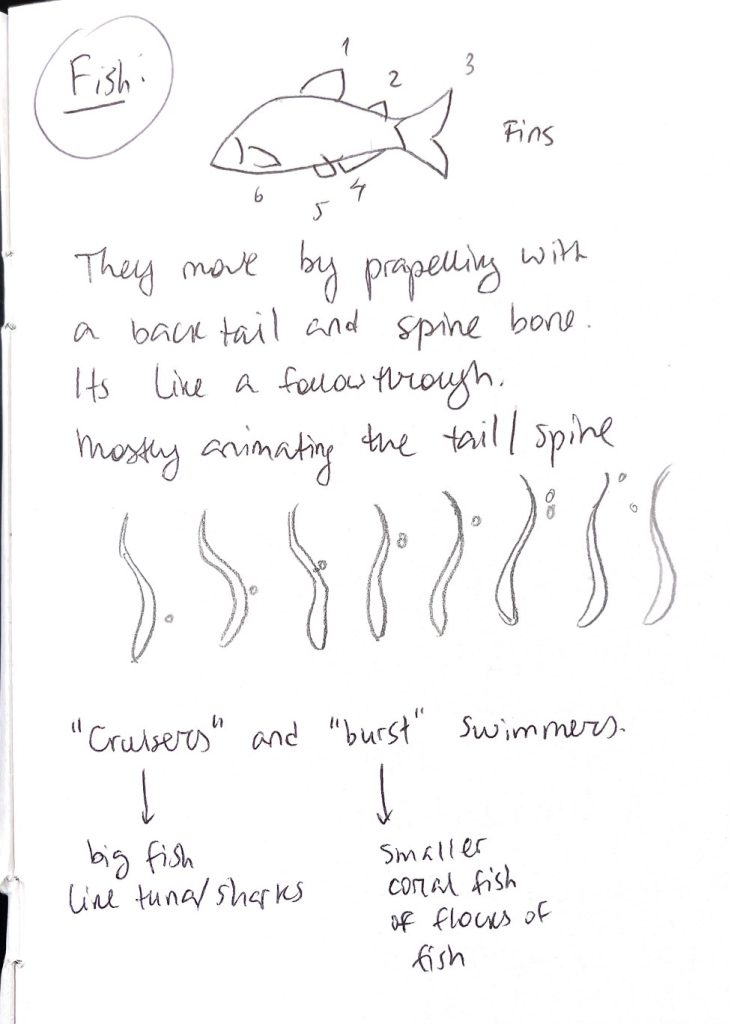 Fish:
1
2
3
Fins
6
5
4
They move by prapelling with
a back tail and spine bone.
Its like a followthrough.
Mostly animating the tail/spine
"Cruisers" and "burst" swimmers.
big fish
like tuna/sharks
smaller
coral fish
of flocks of
fish